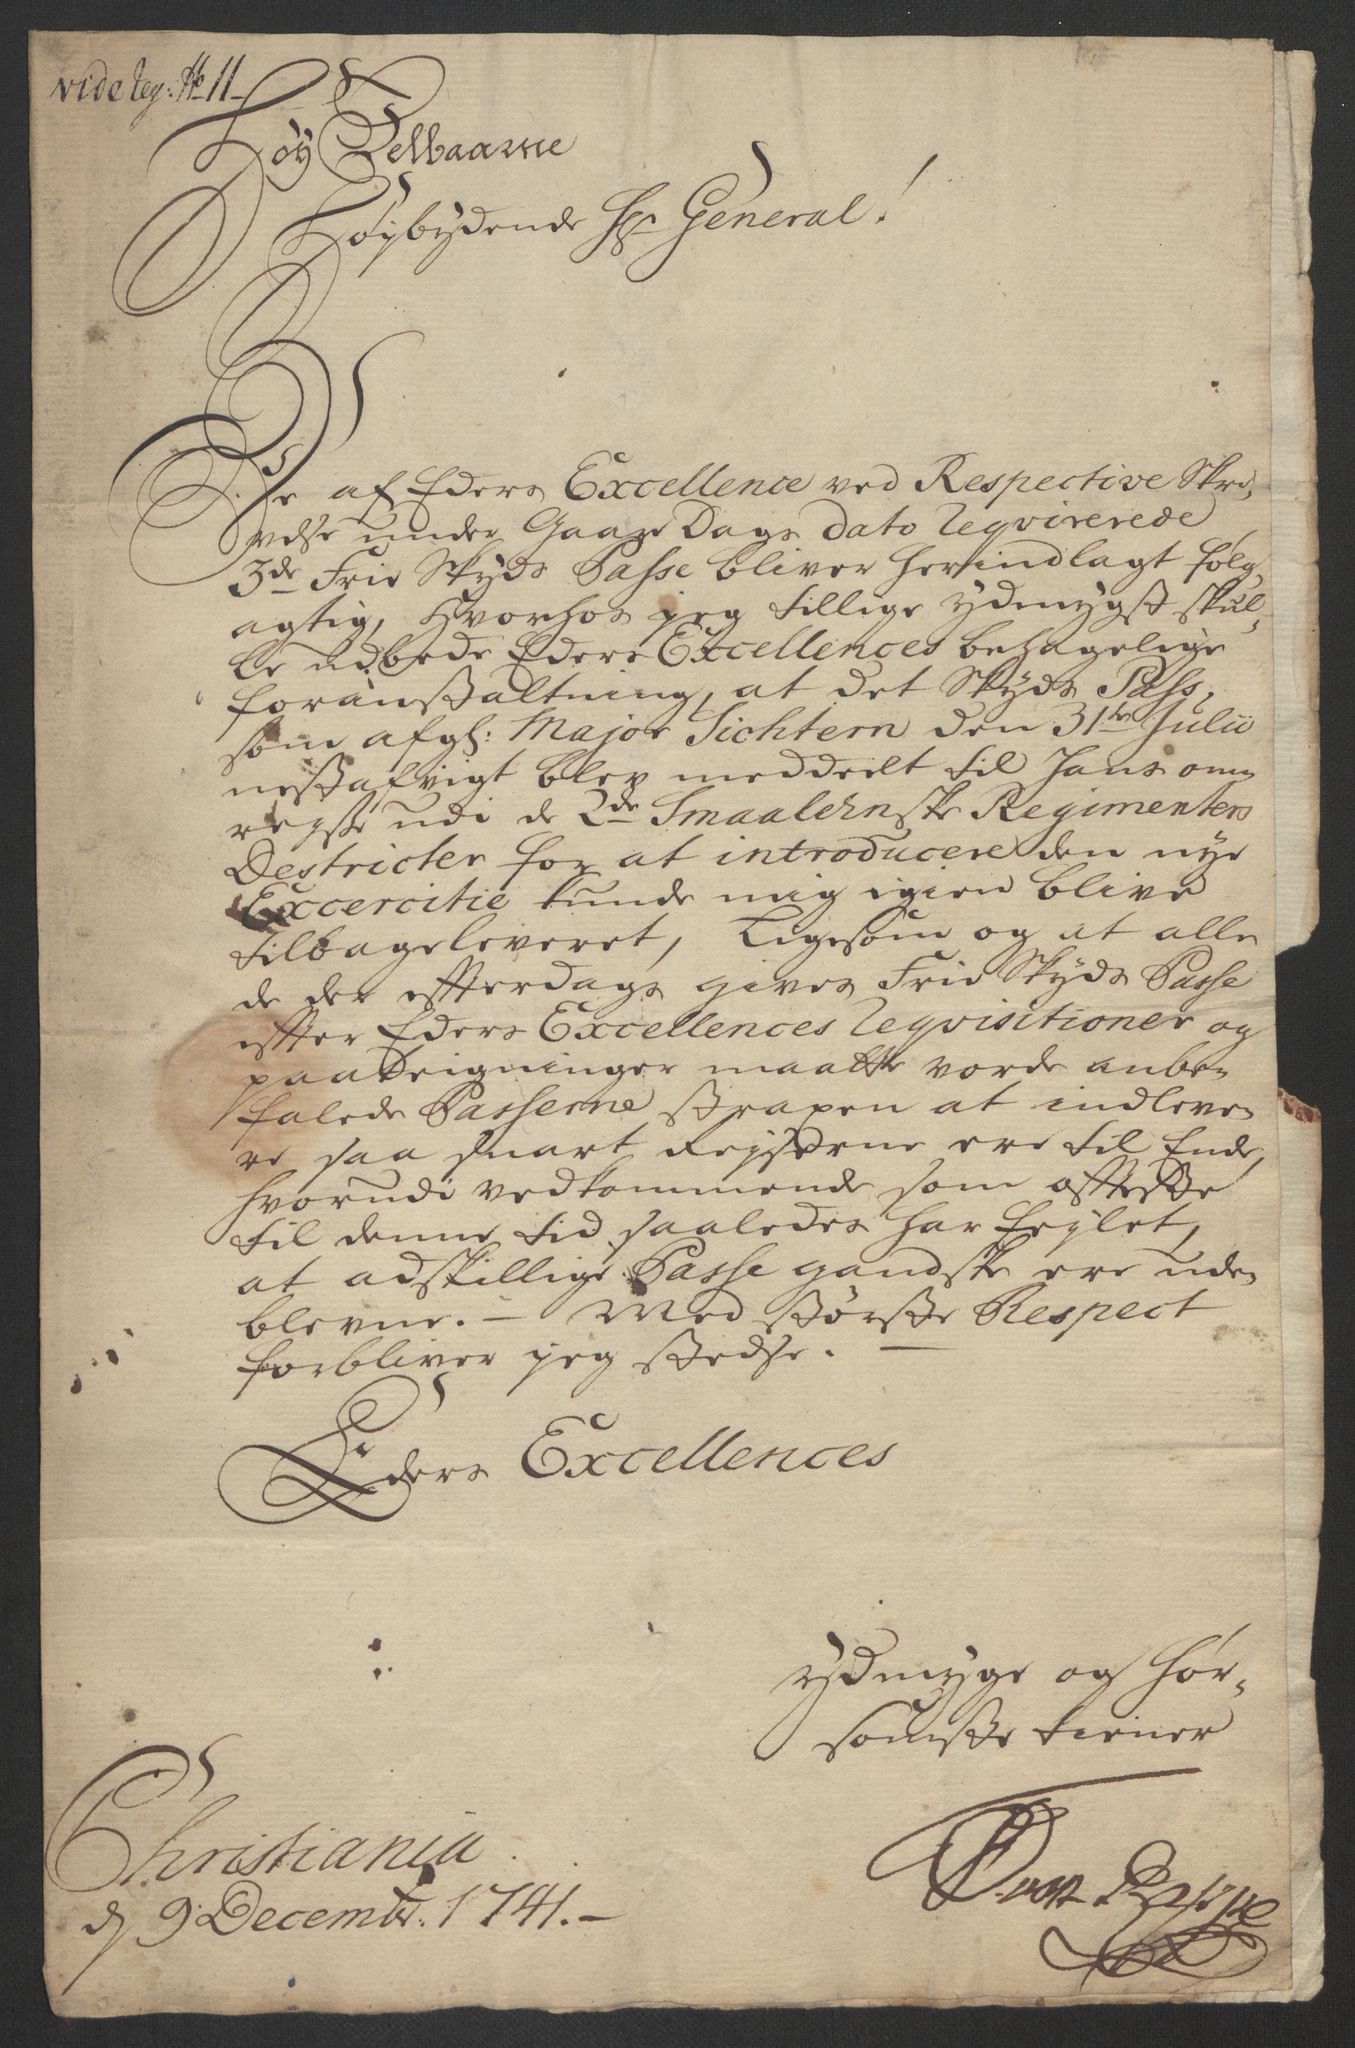 vide reg: No 11
Høy Velbaarne
Høybydende Hr General!
De af Eders Excellence ved Respective Skri-
velse under Gaars Dags dato reqvirerede
3de Frie Skyds Passe bliver herindlagt følg-
agtig, hvorhos jeg tillige ydmygst skul-
le udbede Eders Excellences behagelige
foranstaltning, at det Skyds Pass,
som afgl: Major Sichtern den 31te Julii
nestafvigt blev meddeelt til hans om-
reyse udi de 2de Smaalehnske Regimenters
Destricter for at introducere den nye
Excercitie kunde mig igien blive
tilbageleveret, Ligesom og at alle
de der efterdags gives Frie Skyds Passe
efter Eders Excellences reqvisitioner og
paateigninger maatte vorde anbe-
falede Passerne strapen at indleve-
re saa snart Reyserne ere til Ende,
hvorudi vedkommende som oftest
til denne tid saaledes har feylet,
at adskillige Passe gandske ere ude-
blevne. – Med største Respect
forbliver jeg stedse.
Eders Excellences
ydmyge og hør-
somste tiener
Christiania
d 9 Decembr: 1741.